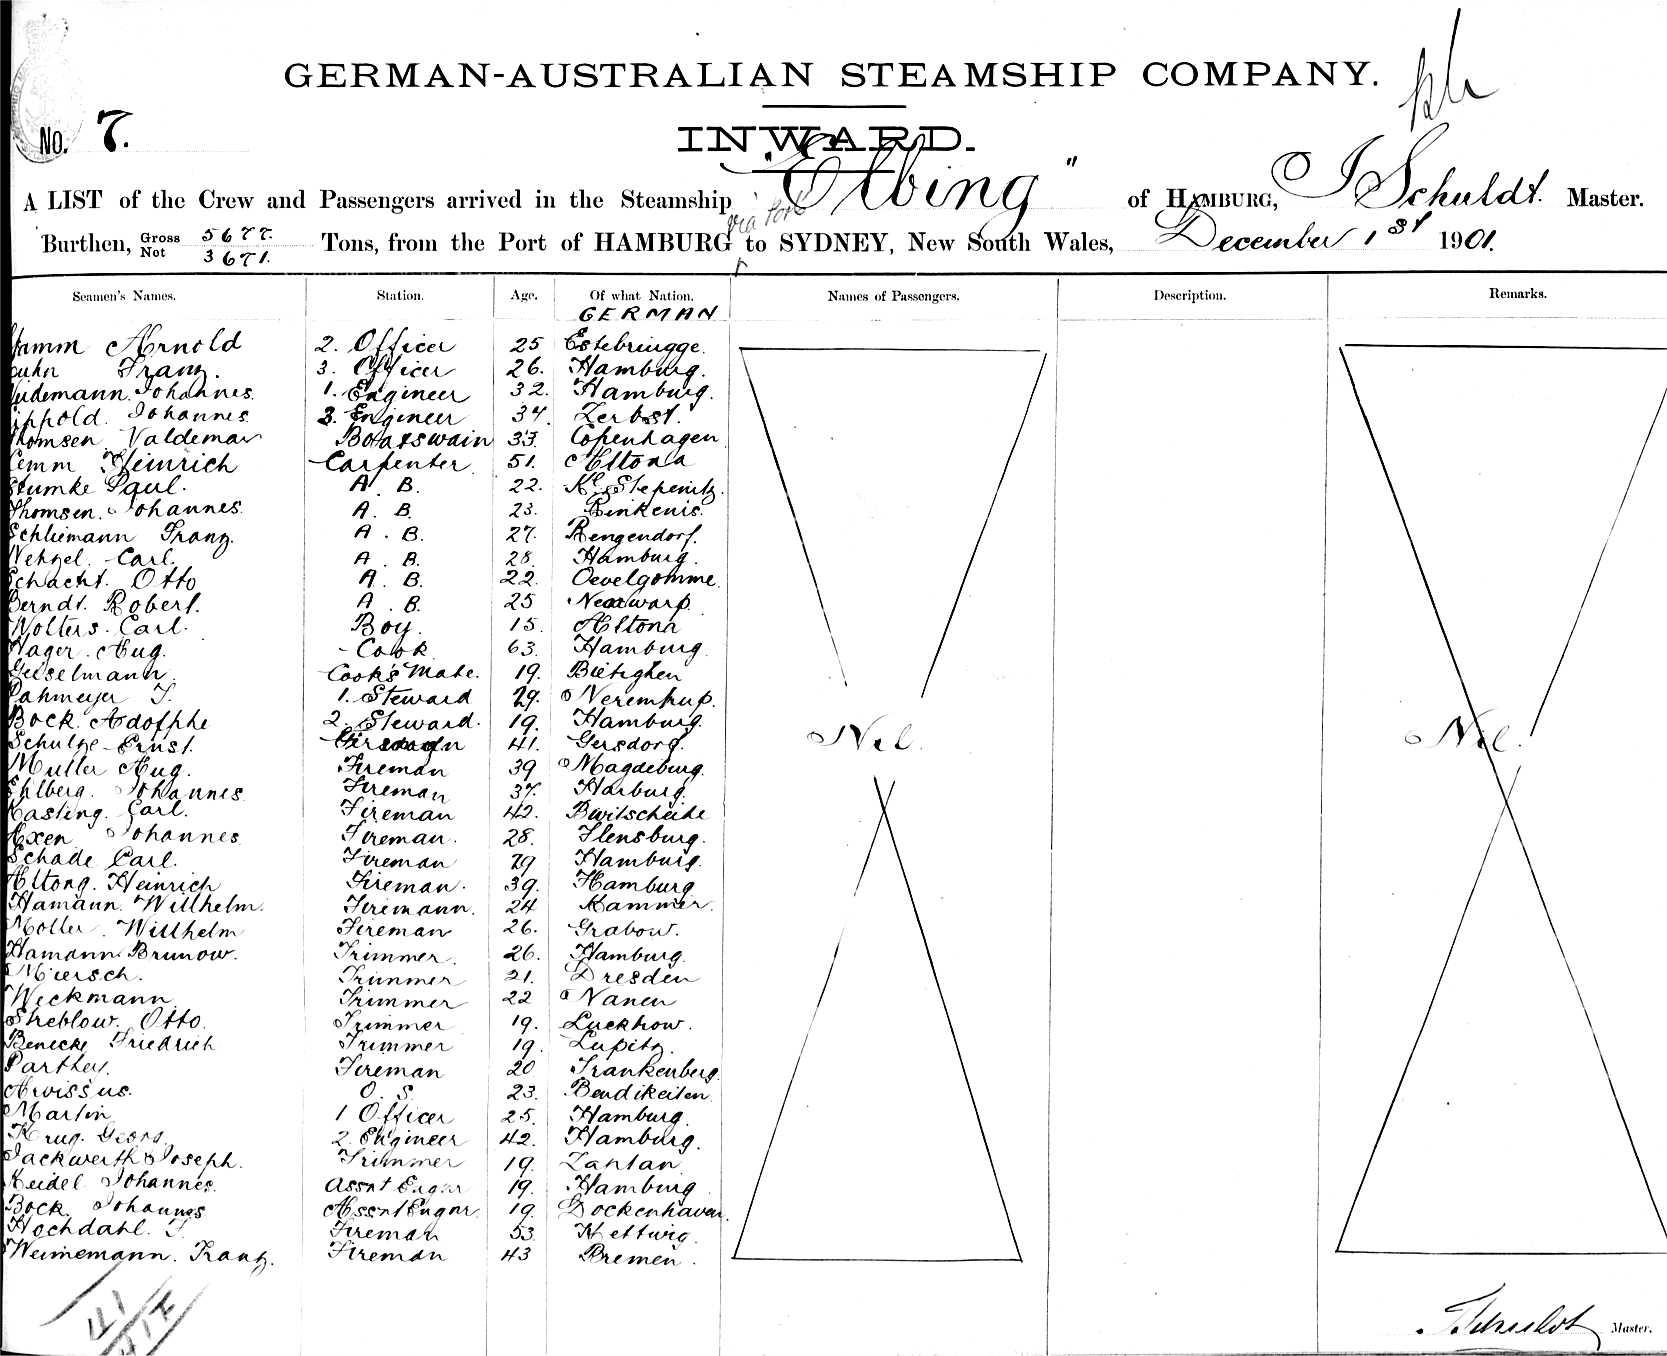 GERMAN-AUSTRALIAN STEAMSHIP COMPANY.
No. 7.
INWARD.
A LIST of the Crew and Passengers arrived in the Steamship "Elbing" of HAMBURG, J Schuldt. Master.
Burthen, Gross 5677. Not 3671. Tons, from the Port of HAMBURG via Port to SYDNEY, New South Wales, December 1st 1901.
Seamen's Names. Station. Age. Of what Nation. Names of Passengers. Description. Remarks.
GERMAN
Arnold 2. Officer 25 Estebrügge.
Franz. 3. Officer 26. Hamburg.
Johannes. 1. Engineer 32. Hamburg.
Johannes 3. Engineer 34. Zerbst.
Thomsen Valdemar Boatswain 33. Copenhagen
Heinrich Carpenter 51. Altona
Stumke Paul. A. B. 22. Kl. Stepenitz.
Thomsen. Johannes. A. B. 23. Binkenis.
Schliemann Franz. A. B. 27. Rengendorf.
Carl. A. B. 28. Hamburg.
Schacht. Otto A. B. 22. Oevelgomme.
Berndt. Robert. A. B. 25 Neuwarp
Wolters. Carl. Boy. 15. Altona
Hager. Aug. Cook 63. Hamburg.
Geiselmann. Cook's Mate. 19. Bietighen
Pahmeyer J. 1. Steward 29.
Bock. Adolphe 2. Steward. 19. Hamburg.
Schulze Ernst. 41. Gersdorf.
Muller Aug. Fireman 39 Magdeburg.
Ehlberg. Johannes Fireman 37. Harburg.
Kasting. Carl. Fireman 42.
Axen Johannes Fireman. 28. Flensburg.
Schade Carl. Fireman 29 Hamburg.
Altong. Heinrich Fireman. 39. Hamburg
Hamann. Willhelm. Firemann. 24 Kammer.
Moller. Willhelm Fireman 26. Grabow.
Hamann. Brunow. Trimmer. 26. Hamburg.
Miersch. Trimmer 21. Dresden
Weckmann Trimmer 22 Nanen
Streblow. Otto. Trimmer 19. Luckhow.
Benecke Friedrich Trimmer 19. Lupitz.
Parthey. Fireman 20 Frankenberg.
Awissus. O. S. 23. Bendikeiten
Martin 1 Officer 25. Hamburg.
Krug. Georg. 2. Engineer 42. Hamburg.
Sackwerth Joseph. Trimmer 19. Zantan.
Keidel Johannes. Assnt Engnr 19. Hamburg
Bock. Johannes Assnt Engnr. 19. Dockenhaven.
Hochdahl. J. Fireman 53. Kettwig.
Weinemann. Frantz. Fireman 43 Bremen.
Nil. Nil.
J Schuldt Master.